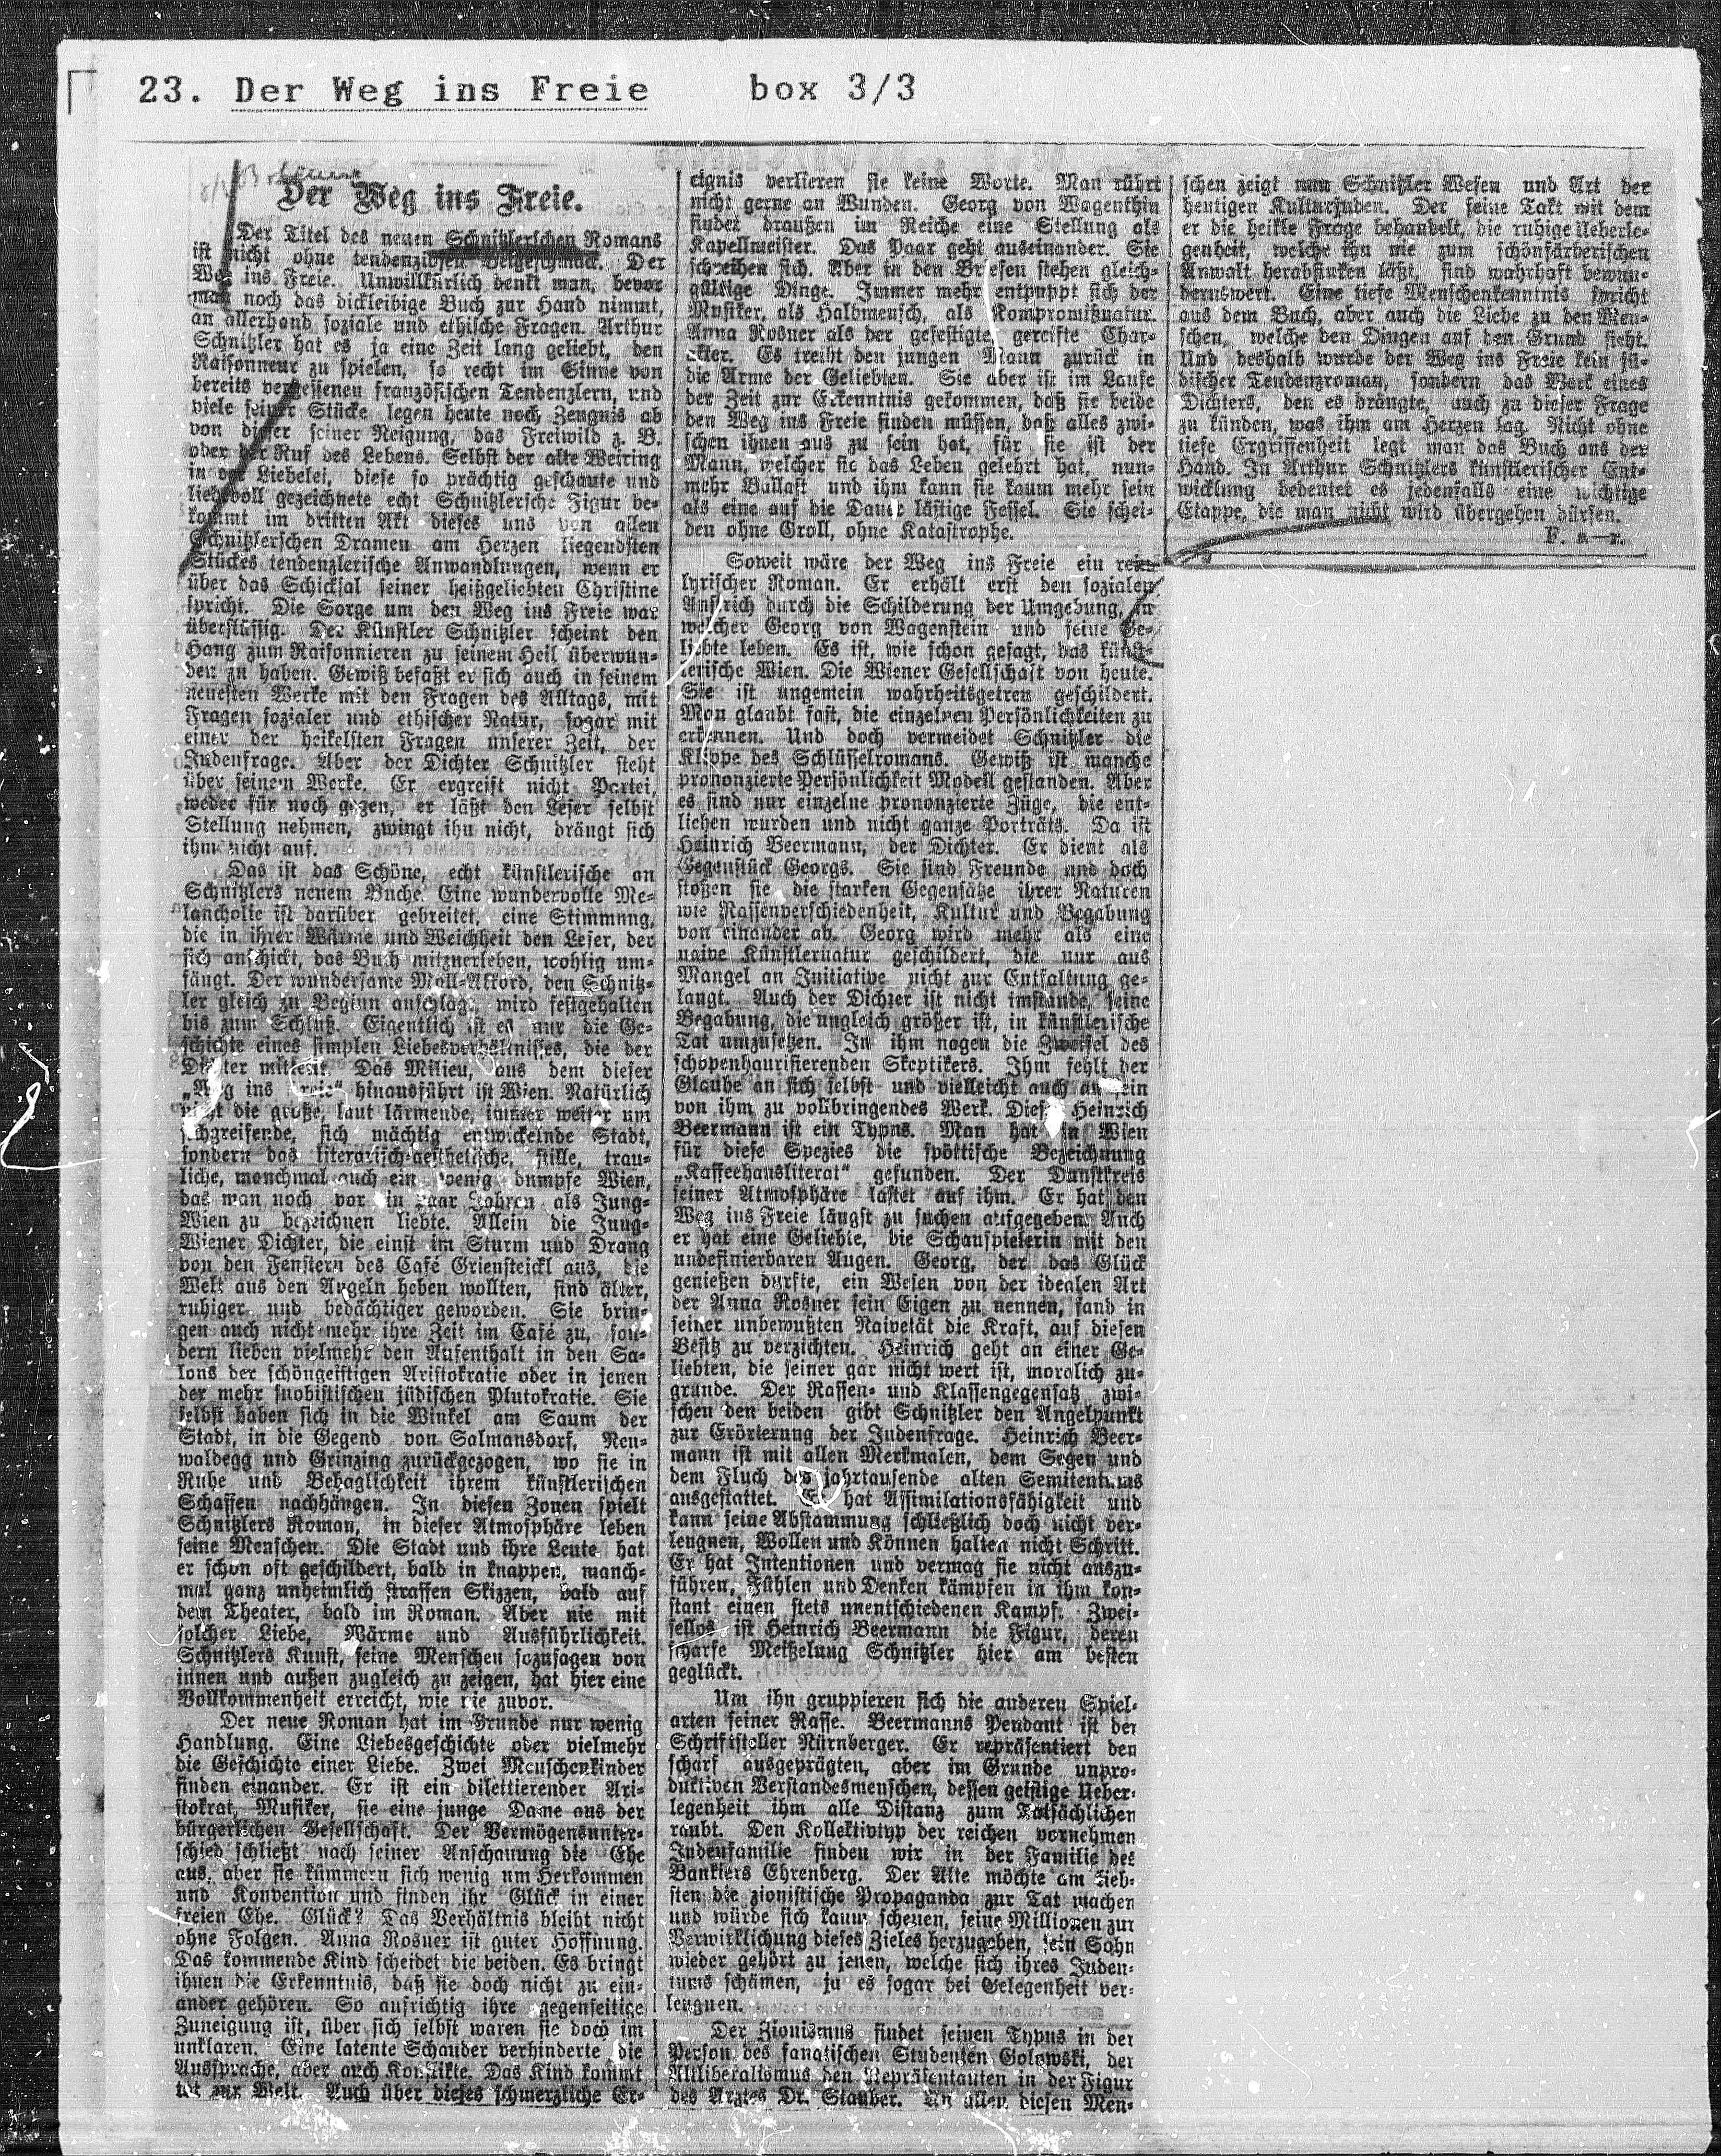 23. Der Weg ins Freie box 3/3
Der Weg ins Freie.
Der Titel des neuen Schnitzlerschen Romans
ist nicht ohne tendenziösen Beigeschmack. Der
Weg ins Freie. Unwillkürlich denkt man, bevor
man noch das dickleibige Buch zur Hand nimmt,
an allerhand soziale und ethische Fragen. Arthur
Schnitzler hat es ja eine Zeit lang geliebt, den
Raisonneur zu spielen, so recht im Sinne von
bereits vergessenen französischen Tendenzlern, und
viele seiner Stücke legen heute noch Zeugnis ab
von dieser seiner Neigung, das Freiwild z. B.
oder der Ruf des Lebens. Selbst der alte Weiring
in der Liebelei, diese so prächtig geschaute und
liebevoll gezeichnete echt Schnitzlersche Figur be-
kommt im dritten Akt dieses uns von allen
Schnitzlerschen Dramen am Herzen liegendsten
Stückes tendenzlerische Anwandlungen, wenn er
über das Schicksal seiner heißgeliebten Christine
spricht. Die Sorge um den Weg ins Freie war
überflüssig. Der Künstler Schnitzler scheint den
Hang zum Raisonnieren zu seinem Heil überwun-
den zu haben. Gewiß befaßt er sich auch in seinem
neuesten Werke mit den Fragen des Alltags, mit
Fragen sozialer und ethischer Natur, sogar mit
einer der heikelsten Fragen unserer Zeit, der
Judenfrage. Aber der Dichter Schnitzler steht
über seinem Werke. Er ergreift nicht Partei,
weder für noch gegen, er läßt den Leser selbst
Stellung nehmen, zwingt ihn nicht, drängt sich
ihm nicht auf.
Das ist das Schöne, echt künstlerische an
Schnitzlers neuem Buche. Eine wundervolle Me-
lancholie ist darüber gebreitet, eine Stimmung,
die in ihrer Wärme und Weichheit den Leser, der
sich anschickt, das Buch mitzuerleben, wohlig um-
fängt. Der wundersame Moll-Akkord, den Schnitz-
ler gleich zu Beginn anschlägt, wird festgehalten
bis zum Schluß. Eigentlich ist es nur die Ge-
schichte eines simplen Liebesverhältnisses, die der
Dichter mitteilt. Das Milieu, aus dem dieser
„Weg ins Freie“ hinausführt ist Wien. Natürlich
nicht die große, laut lärmende, immer weiter um
sichgreifende, sich mächtig entwickelnde Stadt,
sondern das literarisch-aesthetische, stille, trau-
liche, manchmal auch ein wenig dumpfe Wien,
das man noch vor ein paar Jahren als Jung-
Wien zu bezeichnen liebte. Allein die Jung-
Wiener Dichter, die einst im Sturm und Drang
von den Fenstern des Café Griensteickl aus, die
Welt aus den Angeln heben wollten, sind älter,
ruhiger und bedächtiger geworden. Sie brin-
gen auch nicht mehr ihre Zeit im Café zu, son-
dern lieben vielmehr den Aufenthalt in den Sa-
lons der schöngeistigen Aristokratie oder in jenen
der mehr snobistischen jüdischen Plutokratie. Sie
selbst haben sich in die Winkel am Saum der
Stadt, in die Gegend von Salmansdorf, Neu-
waldegg und Grinzing zurückgezogen, wo sie in
Ruhe und Behaglichkeit ihrem künstlerischen
Schaffen nachhängen. In diesen Zonen spielt
Schnitzlers Roman, in dieser Atmosphäre leben
seine Menschen. Die Stadt und ihre Leute hat
er schon oft geschildert, bald in knappen, manch-
mal ganz unheimlich straffen Skizzen, bald auf
dem Theater, bald im Roman. Aber nie mit
solcher Liebe, Wärme und Ausführlichkeit.
Schnitzlers Kunst, seine Menschen sozusagen von
innen und außen zugleich zu zeigen, hat hier eine
Vollkommenheit erreicht, wie nie zuvor.
Der neue Roman hat im Grunde nur wenig
Handlung. Eine Liebesgeschichte oder vielmehr
die Geschichte einer Liebe. Zwei Menschenkinder
finden einander. Er ist ein dilettierender Ari-
stokrat, Musiker, sie eine junge Dame aus der
bürgerlichen Gesellschaft. Der Vermögensunter-
schied schließt nach seiner Anschauung die Ehe
aus, aber sie kümmern sich wenig um Herkommen
und Konvention und finden ihr Glück in einer
freien Ehe. Glück? Das Verhältnis bleibt nicht
ohne Folgen. Anna Rosner ist guter Hoffnung.
Das kommende Kind scheidet die beiden. Es bringt
ihnen die Erkenntnis, daß sie doch nicht zu ein-
ander gehören. So aufrichtig ihre gegenseitige
Zuneigung ist, über sich selbst waren sie doch im
unklaren. Eine latente Schauder verhinderte die
Aussprache, aber auch Konflikte. Das Kind kommt
tot zur Welt. Auch über dieses schmerzliche Er-
eignis verlieren sie keine Worte. Man rührt
nicht gerne an Wunden. Georg von Wagenthin
findet draußen im Reiche eine Stellung als
Kapellmeister. Das Paar geht auseinander. Sie
schreiben sich. Aber in den Briefen stehen gleich-
gültige Dinge. Immer mehr entpuppt sich der
Musiker, als Halbmensch, als Kompromißnatur.
Anna Rosner als der gefestigte, gereifte Char-
akter. Es treibt den jungen Mann zurück in
die Arme der Geliebten. Sie aber ist im Laufe
der Zeit zur Erkenntnis gekommen, daß sie beide
den Weg ins Freie finden müssen, daß alles zwi-
schen ihnen aus zu sein hat, für sie ist der
Mann, welcher sie das Leben gelehrt hat, nun-
mehr Ballast und ihm kann sie kaum mehr sein
als eine auf die Dauer lästige Fessel. Sie schei-
den ohne Groll, ohne Katastrophe.
Soweit wäre der Weg ins Freie ein rein
lyrischer Roman. Er erhält erst den sozialen
Anstrich durch die Schilderung der Umgebung, in
welcher Georg von Wagenstein und seine Ge-
liebte leben. Es ist, wie schon gesagt, das künst-
lerische Wien. Die Wiener Gesellschaft von heute.
Sie ist ungemein wahrheitsgetreu geschildert.
Man glaubt fast, die einzelnen Persönlichkeiten zu
erkennen. Und doch vermeidet Schnitzler die
Klippe des Schlüsselromans. Gewiß ist manche
prononzierte Persönlichkeit Modell gestanden. Aber
es sind nur einzelne prononzierte Züge, die ent-
liehen wurden und nicht ganze Porträts. Da ist
Heinrich Beermann, der Dichter. Er dient als
Gegenstück Georgs. Sie sind Freunde und doch
stoßen sie die starken Gegensätze ihrer Naturen
wie Rassenverschiedenheit, Kultur und Begabung
von einander ab. Georg wird mehr als eine
naive Künstlernatur geschildert, die nur aus
Mangel an Initiative nicht zur Entfaltung ge-
langt. Auch der Dichter ist nicht imstande, seine
Begabung, die ungleich größer ist, in künstlerische
Tat umzusetzen. In ihm nagen die Zweifel des
schopenhaurisierenden Skeptikers. Ihm fehlt der
Glaube an sich selbst und vielleicht auch an ein
von ihm zu vollbringendes Werk. Dieser Heinrich
Beermann ist ein Typus. Man hat in Wien
für diese Spezies die spöttische Bezeichnung
„Kaffeehausliterat“ gefunden. Der Dunstkreis
seiner Atmosphäre lastet auf ihm. Er hat den
Weg ins Freie längst zu suchen aufgegeben. Auch
er hat eine Geliebte, die Schauspielerin mit den
undefinierbaren Augen. Georg, der das Glück
genießen durfte, ein Wesen von der idealen Art
der Anna Rosner sein Eigen zu nennen, fand in
seiner unbewußten Naivetät die Kraft, auf diesen
Besitz zu verzichten. Heinrich geht an einer Ge-
liebten, die seiner gar nicht wert ist, moralich zu-
grunde. Der Rassen- und Klassengegensatz zwi-
schen den beiden gibt Schnitzler den Angelpunkt
zur Erörterung der Judenfrage. Heinrich Beer-
mann ist mit allen Merkmalen, dem Segen und
dem Fluch des jahrtausende alten Semitentums
ausgestattet. Er hat Assimilationsfähigkeit und
kann seine Abstammung schließlich doch nicht ver-
leugnen, Wollen und Können halten nicht Schritt.
Er hat Intentionen und vermag sie nicht auszu-
führen, Fühlen und Denken kämpfen in ihm kon-
stant einen stets unentschiedenen Kampf. Zwei-
fellos ist Heinrich Beermann die Figur, deren
scharfe Meißelung Schnitzler hier am besten
geglückt.
Um ihn gruppieren sich die anderen Spiel-
arten seiner Rasse. Beermanns Pendant ist der
Schriftsteller Nürnberger. Er repräsentiert den
scharf ausgeprägten, aber im Grunde unpro-
duktiven Verstandesmenschen, dessen geistige Ueber-
legenheit ihm alle Distanz zum Tatsächlichen
raubt. Den Kollektivtyp der reichen vornehmen
Judenfamilie finden wir in der Familie des
Bankiers Ehrenberg. Der Alte möchte am lieb-
sten die zionistische Propaganda zur Tat machen
und würde sich kaum scheuen, seine Millionen zur
Verwirklichung dieses Zieles herzugeben, sein Sohn
wieder gehört zu jenen, welche sich ihres Juden-
tums schämen, ja es sogar bei Gelegenheit ver-
leugnen.
Der Zionismus findet seinen Typus in der
Person des fanatischen Studenten Golowski, der
Altliberalismus den Repräsentanten in der Figur
des Arztes Dr. Stauber. An allen diesen Men-
schen zeigt nun Schnitzler Wesen und Art der
heutigen Kulturjuden. Der feine Takt mit dem
er die heikle Frage behandelt, die ruhige Ueberle-
genheit, welche ihn nie zum schönfärberischen
Anwalt herabsinken läßt, sind wahrhaft bewun-
dernswert. Eine tiefe Menschenkenntnis spricht
aus dem Buch, aber auch die Liebe zu den Men-
schen, welche den Dingen auf den Grund sieht.
Und deshalb wurde der Weg ins Freie kein jü-
discher Tendenzroman, sondern das Werk eines
Dichters, den es drängte, auch zu dieser Frage
zu künden, was ihm am Herzen lag. Nicht ohne
tiefe Ergriffenheit legt man das Buch aus der
Hand. In Arthur Schnitzlers künstlerischer Ent-
wicklung bedeutet es jedenfalls eine wichtige
Etappe, die man nicht wird übergehen dürfen.
F. a—r.